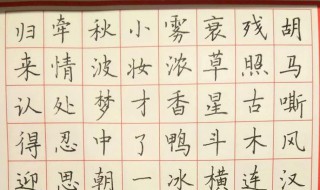 胡马嘶风汉
残照古木连
衰草星斗横
雾浓香鸭冰
小妆才了一
秋波梦中朝
牵情处忍思
归来认得迎